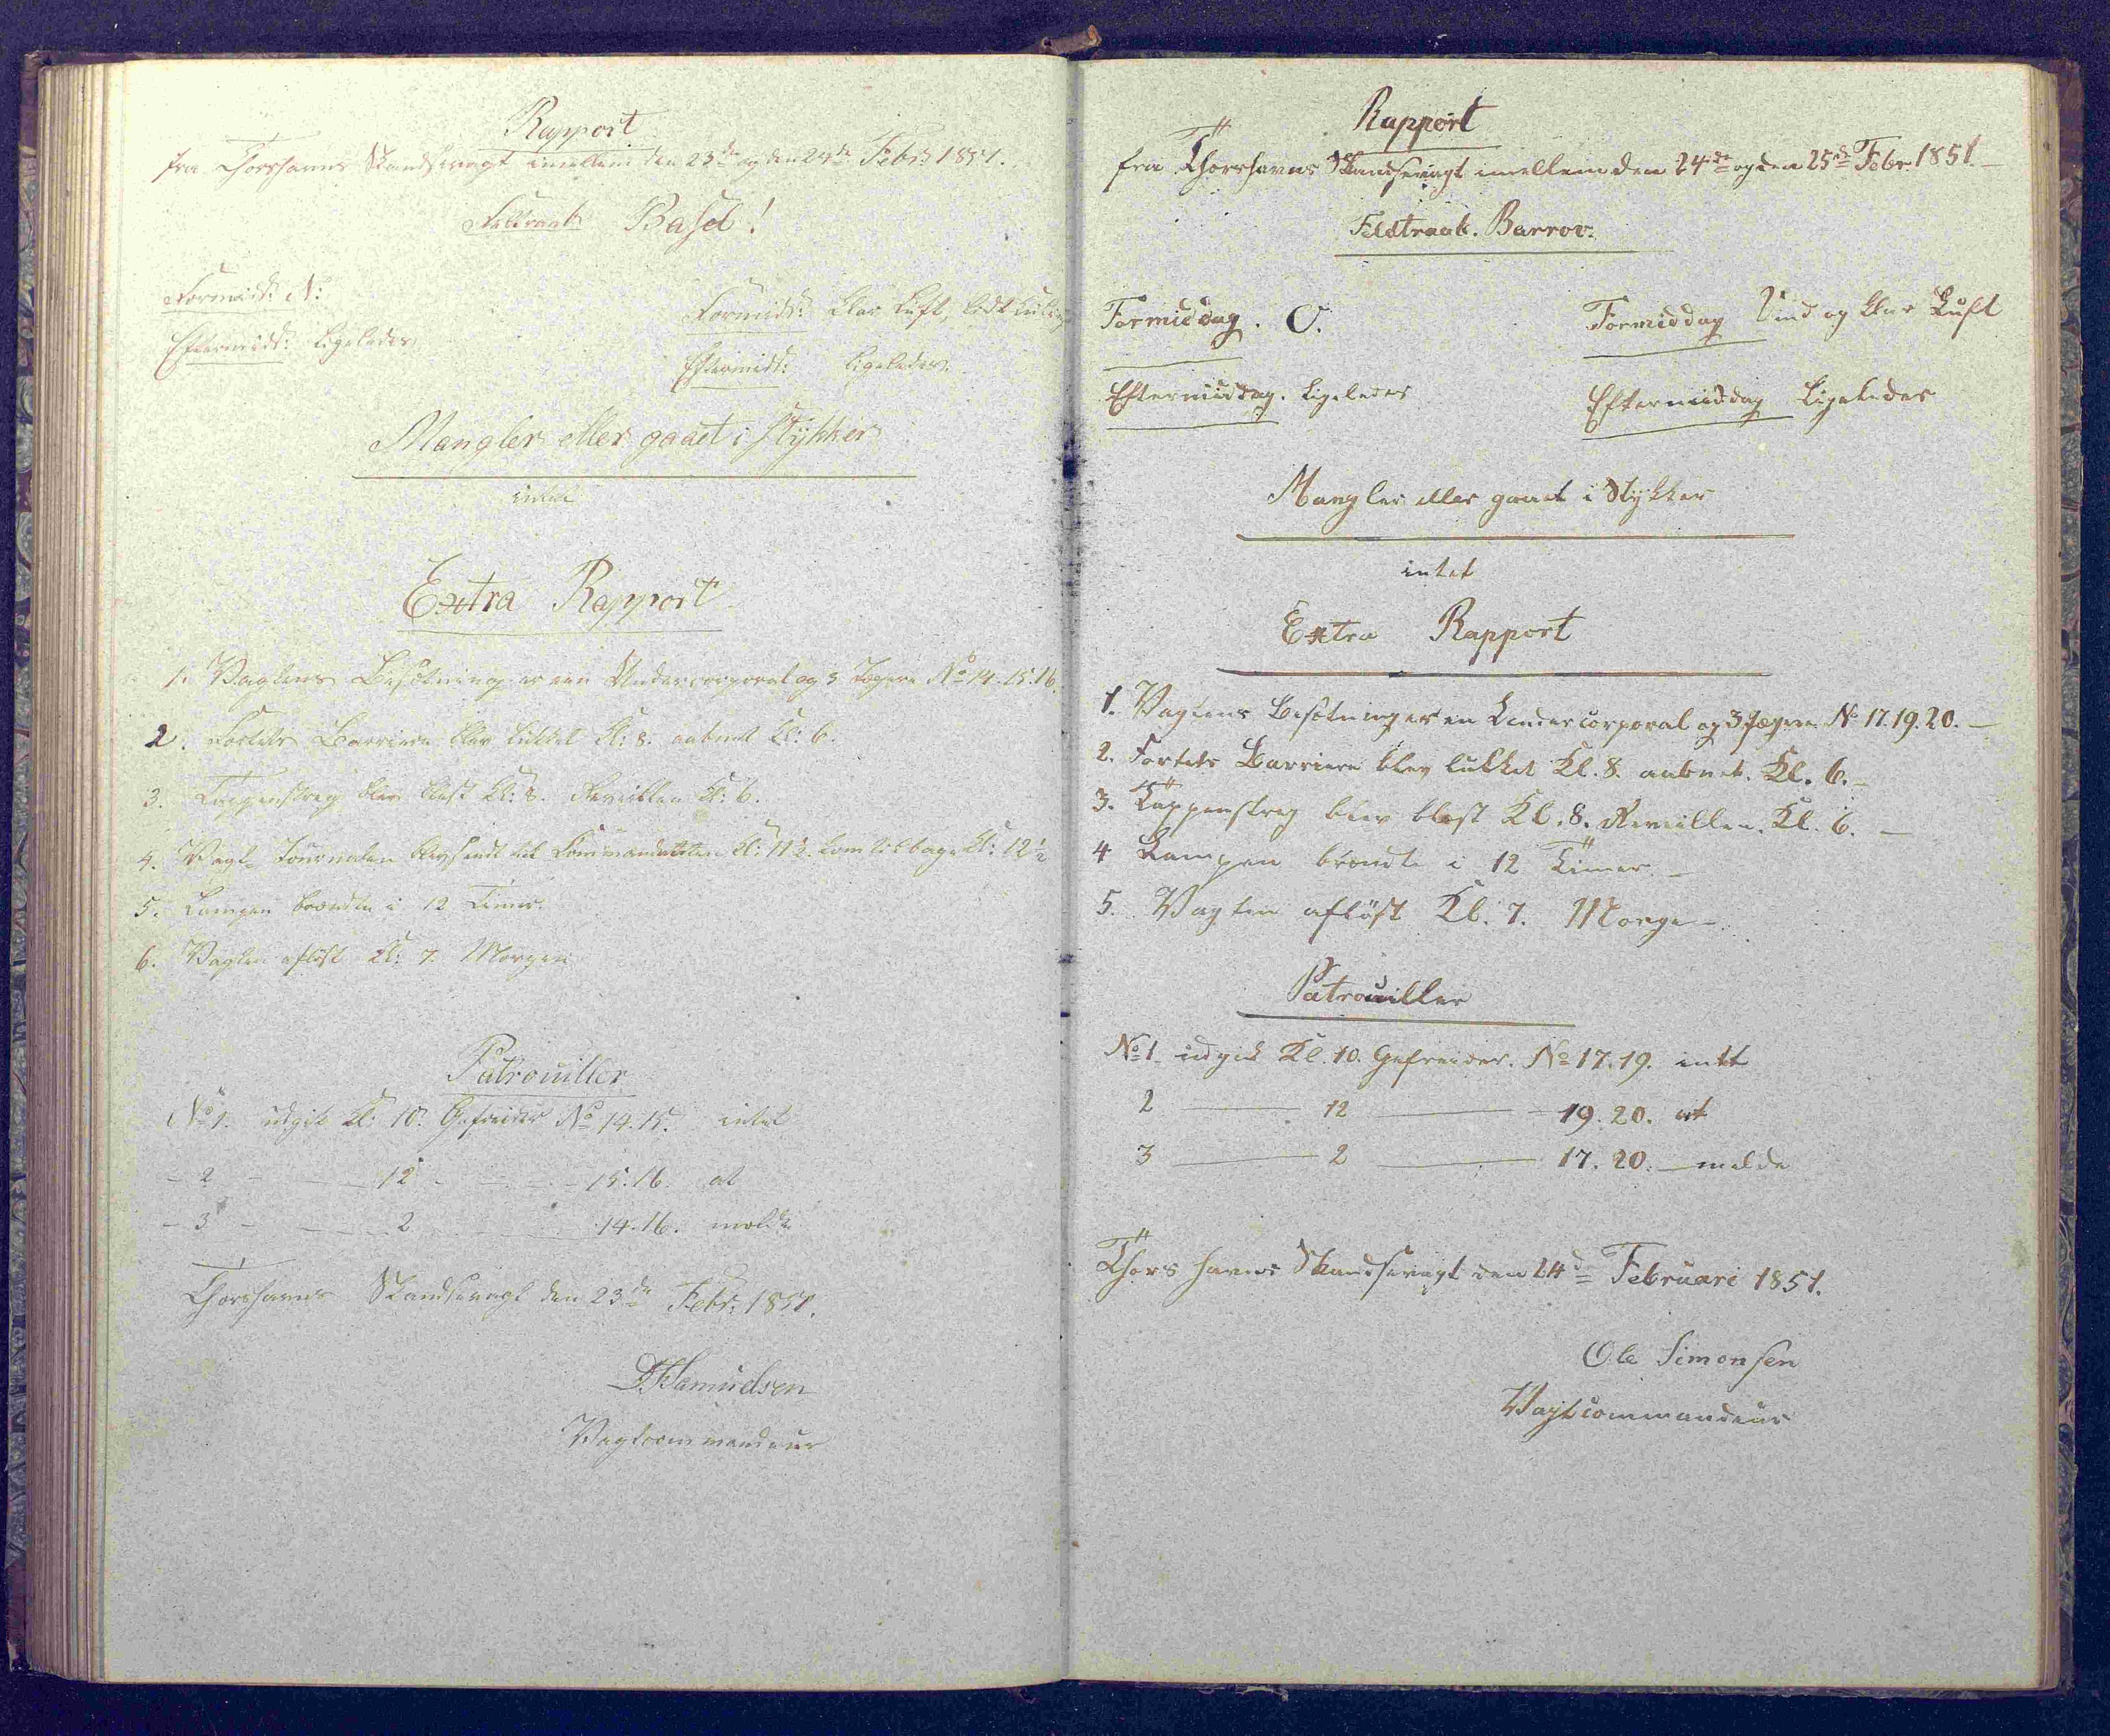 Rapport
fra Thorshavns Skandsevagt imellem den 23de og den 24de Febr 1851.
Feltraab Basel!
Formidd: N:
Formidd: klar Luft, lidt
Eftermidd: ligeledes
Eftermidd: ligeledes.
Mangler eller gaaet i Stykker
intet
Extra Rapport
1. Vagtens Besætning er een Undercorporal og 3 Jægere No 14.15.16.
2. Fortets Barriere blev lukket Kl: 8. aabnet Kl: 6.
3. Tappenstreg blev blæst Kl: 8. Reveillen Kl: 6.
4. Vagt-Journalen blev sendt til Commandanten Kl: 11½. kom tilbage Kl: 12½
5. Lampen brændte i 12 Timer.
6. Vagten afløst Kl: 7. Morgen
Patrouiller
No 1. udgik Kl: 10. Gefreider No 14.15. intet
- 2 - — 12 - — 15.16. at
- 3 - — 2 — 14.16. melde
Thorshavns Skandsevagt den 23de Febr: 1851.
Samuelsen
Vagtcommandeur
Rapport
fra Thorshavns Skandsevagt imellem den 24de og den 25de Febr. 1851.
Feldtraab. Barrov.
Formiddag. O.
Formiddag Vind og klar Luft
Eftermiddag. ligeledes
Eftermiddag ligeledes
Mangler eller gaaet i Stykker
intet
Extra Rapport
1. Vagtens Besætning er en Undercorporal og 3 Jægere No 17.19.20.
2. Fortets Barriere blev lukket Kl. 8. aabnet. Kl. 6.
3. Tappenstreg blev blæst Kl. 8. Reveillen. Kl. 6.
4 Lampen brændte i 12 Timer.
5. Vagten afløst Kl. 7. Morge
Patrouiller
No 1 udgik Kl. 10. Gefreider. No 17.19. intt
2 — 12 — 19.20. at
3 — 2 — 17.20. melde
Thorshavns Skandsevagt den 24d Februari 1851.
Ole Simonsen
Vagtcommandeur